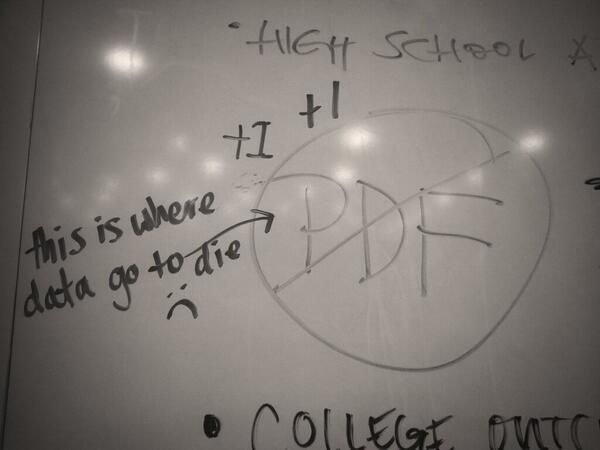 • HIGH SCHOOL
+1
+1
this is where
data go to die
:(
PDF
• COLLEGE